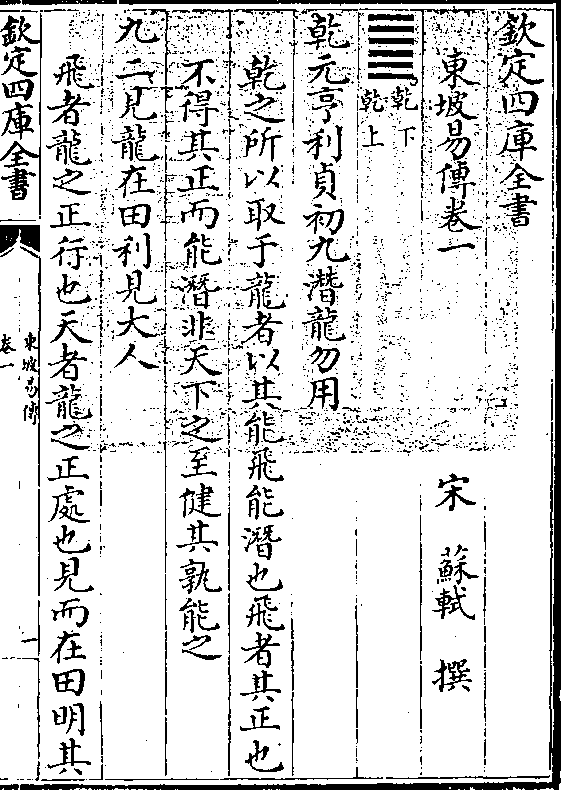 欽定四庫全書
東坡易傳卷一
宋 蘇軾 撰
乾下
乾上
乾元亨利貞初九潛龍勿用
乾之所以取于龍者以其能飛能潛也飛者其正也
不得其正而能潛非天下之至健其孰能之
九二見龍在田利見大人
飛者龍之正行也天者龍之正處也見而在田明其
欽定四庫全書
東坡易傳
卷一
一